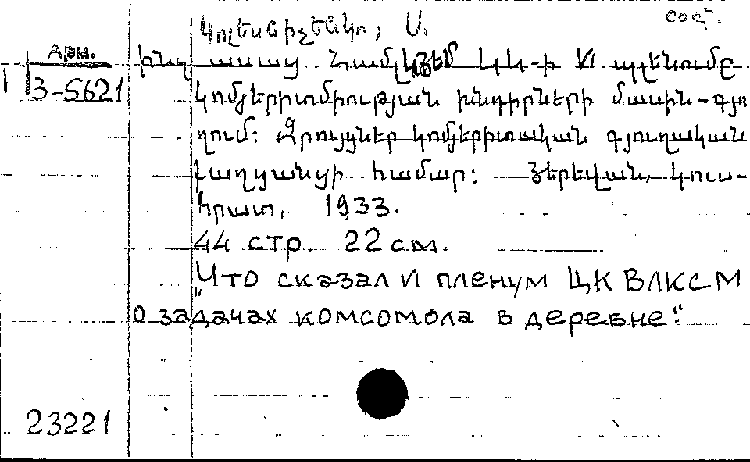 соц.
Կոլեսնիչենկո, Ս.
Арм.
3-5621
Ինչ ասաց Համլկյեմ ԿԿ-ի VI պլենումը
կոմյերիտմիության խնդիրների մասին-գյու
ղում: Զրույցներ կոմյերիտական գյուղական
համար: Յերեվան, Կուս-
հրատ, 1933.
44 стр. 22 см.
"Что сказал VI пленум ЦК ВЛКСМ
о задачах комсомола в деревне."
23221